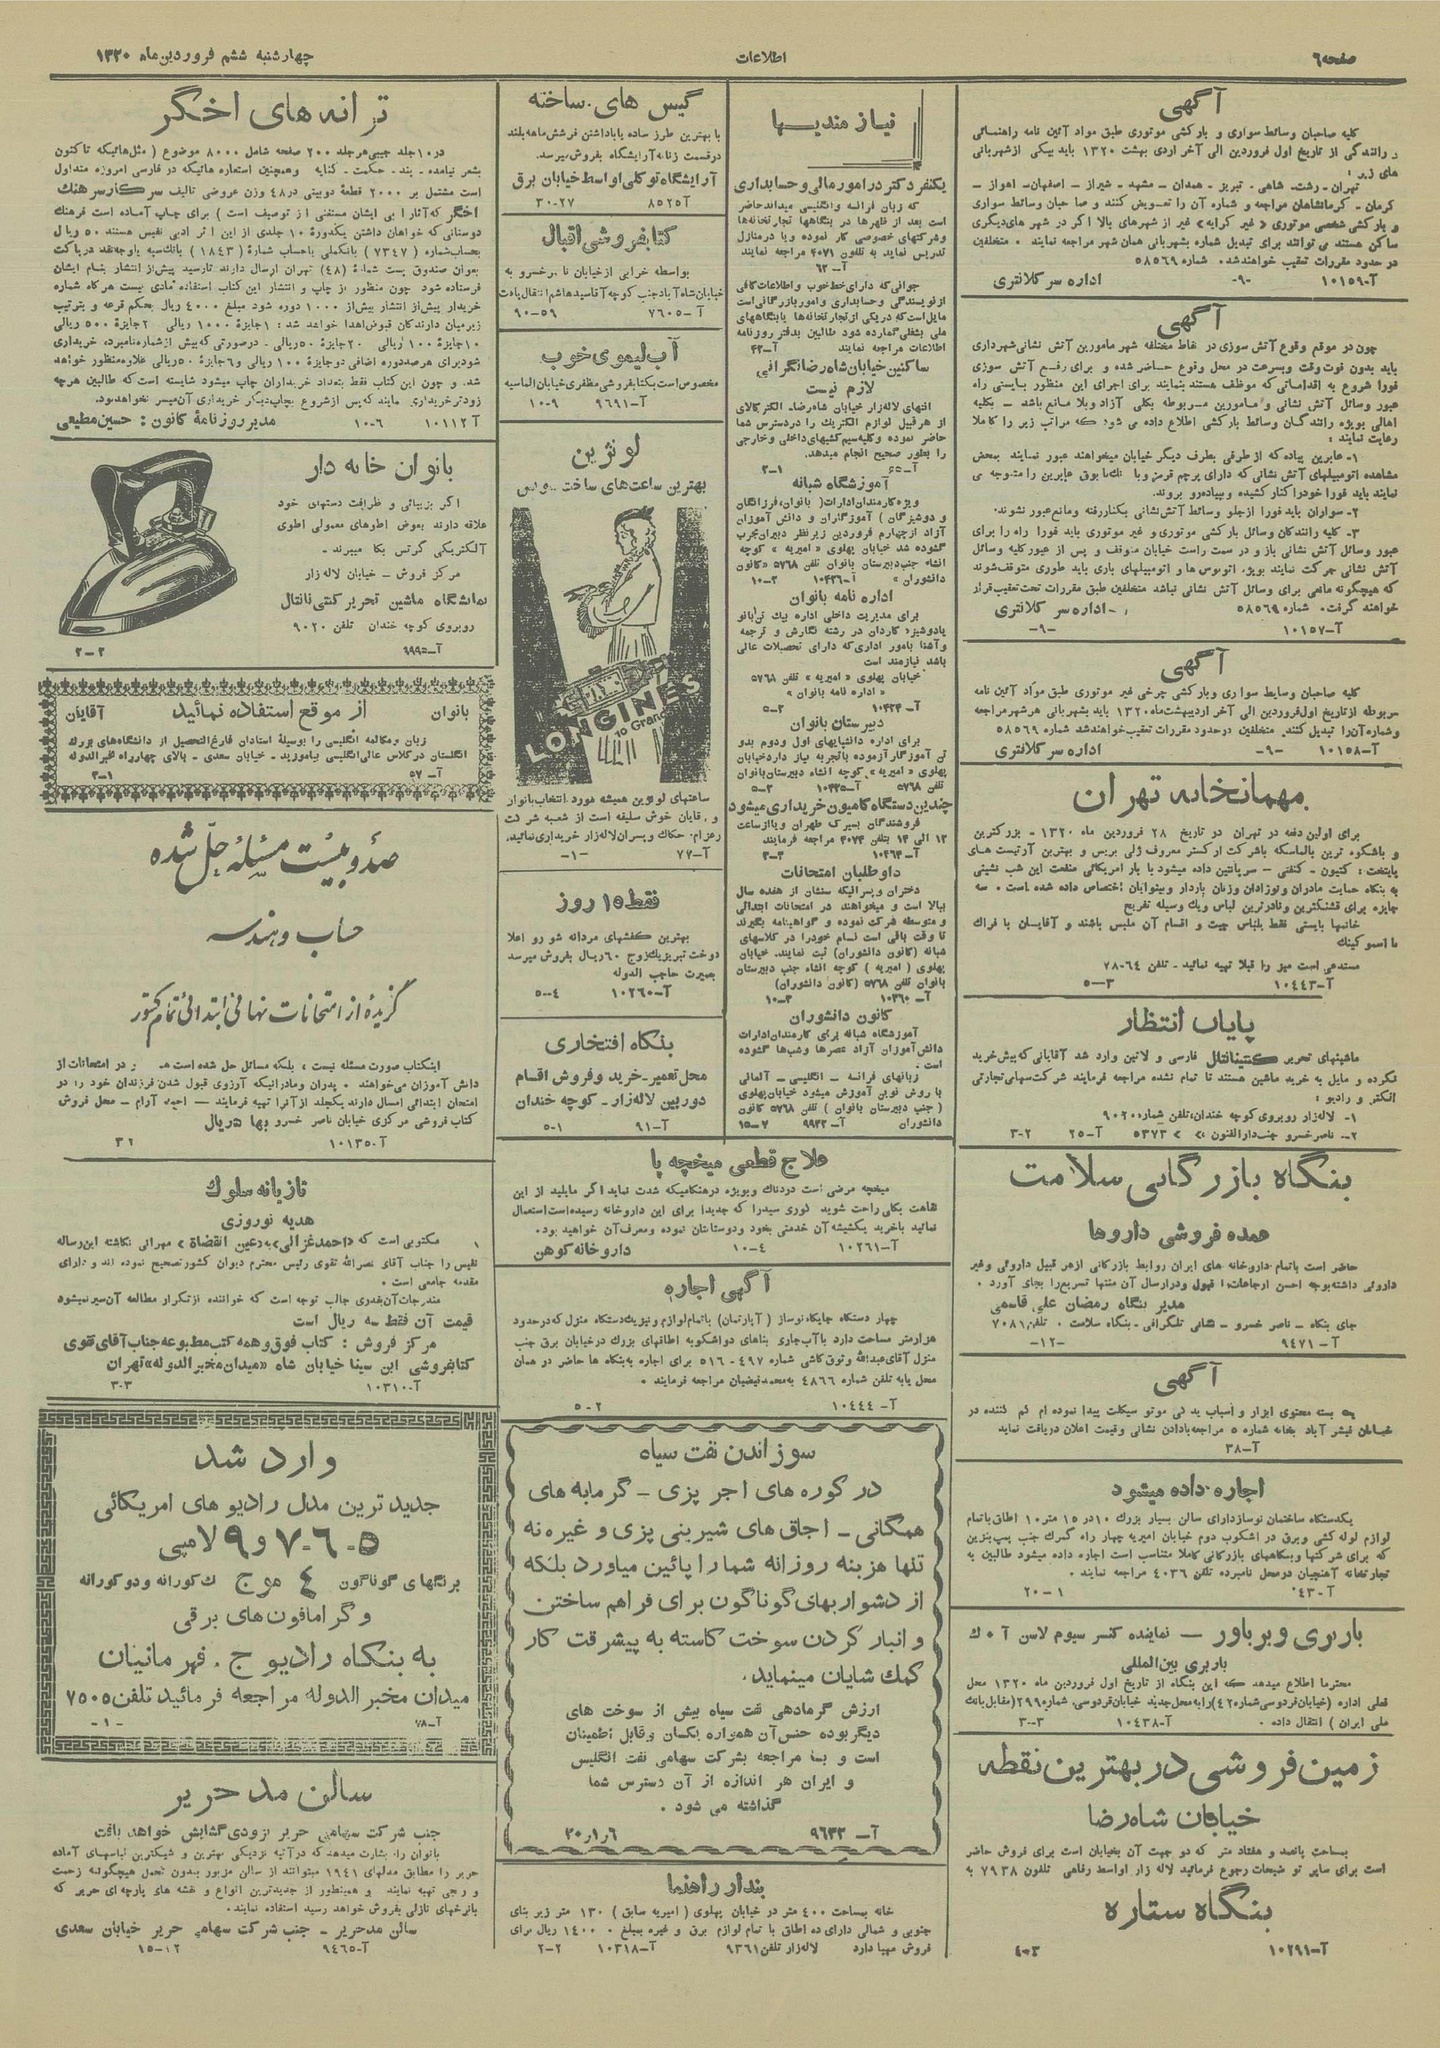 صفحه ٦
اطلاعات
چهارشنبه ششم فروردین ماه ۱۳۲۰
آگهی
کلیه صاحبان وسائط سواری و بارکشی موتوری طبق مواد آئین نامه راهنمائی
و رانندگی از تاریخ اول فروردین الی آخر اردی بهشت ۱۳۲۰ باید بیکی از شهربانی
های زیر:
تهران - رشت - شاهی - تبریز - همدان - مشهد - شیراز - اصفهان - اهواز -
کرمان - کرمانشاهان مراجعه و شماره آن را تعویض کنند و صاحبان وسائط سواری
و بارکشی شخصی موتوری «غیر کرایه» غیر از شهرهای بالا اگر در شهرهای دیگری
ساکن هستند می توانند برای تبدیل شماره بشهربانی همان شهر مراجعه نمایند . متخلفین
در حدود مقررات تعقیب خواهند شد. شماره ۵۸۵٦۹
آ-۱۰۱۵۹ -۹- اداره سر کلانتری
آگهی
چون در موقع وقوع آتش سوزی در نقاط مختلفه شهر مامورین آتش نشانی شهرداری
باید بدون فوت وقت و بسرعت در محل وقوع حاضر شده و برای رفع آتش سوزی
فورا شروع به اقداماتی که موظف هستند بنمایند برای اجرای این منظور بایستی راه
عبور وسائل آتش نشانی و مامورین مربوطه بکلی آزاد و بلا مانع باشد - بکلیه
اهالی بویژه رانندگان وسائط بارکشی اطلاع داده می شود که مراتب زیر را کاملا
رعایت نمایند :
۱- عابرین پیاده که از طرفی بطرف دیگر خیابان میخواهند عبور نمایند بمحض
مشاهده اتومبیلهای آتش نشانی که دارای پرچم قرمز و با بانک بوق عابرین را متوجه می
نمایند باید فورا خود را کنار کشیده و پیاده رو بروند.
۲- سواران باید فورا از جلو وسائط آتش نشانی بکنار رفته و مانع عبور نشوند.
۳- کلیه رانندگان وسائل بارکشی موتوری و غیر موتوری باید فورا راه را برای
عبور وسائل آتش نشانی باز و در سمت راست خیابان متوقف و پس از عبور کلیه وسائل
آتش نشانی حرکت نمایند بویژه اتوبوس ها و اتومبیلهای باری باید طوری متوقف شوند
که هیچگونه مانعی برای وسائل آتش نشانی نباشد متخلفین طبق مقررات تحت تعقیب قرار
خواهند گرفت. شماره ۵۸۵٦۹ - اداره سر کلانتری
آ-۱۰۱۵۷ -۹-
آگهی
کلیه صاحبان وسایط سواری و بارکشی چرخی غیر موتوری طبق مواد آئین نامه
مربوطه از تاریخ اول فروردین الی آخر اردیبهشت ماه ۱۳۲۰ باید بشهربانی هر شهر مراجعه
و شماره آن را تبدیل کنند. متخلفین در حدود مقررات تعقیب خواهند شد شماره ۵۸۵٦۹
آ-۱۰۱۵۸ -۹- اداره سر کلانتری
مهمانخانه تهران
برای اولین دفعه در تهران در تاریخ ۲۸ فروردین ماه ۱۳۲۰ - بزرگترین
و باشکوه ترین بالماسکه باشرکت ارکستر معروف ژلی بریس و بهترین آرتیست های
پایتخت : کتیون - کنفتی - سرپانتین داده میشود با بار امریکائی منفعت این شب نشینی
به بنگاه حمایت مادران و نوزادان وزنان باردار و بینوایان اختصاص داده شده است . سه
جایزه برای قشنگترین و نادرترین لباس و یک وسیله تفریح
خانمها بایستی فقط بلباس چیت و اقسام آن ملبس باشند و آقایان با فراک
یا اسموکینک
مستدعی است میز را قبلا تهیه نمائید - تلفن ٦٤-۷۸
آ-۱۰٤٤۳ ۳-۵
پایان انتظار
ماشینهای تحریر کنتیننتال فارسی و لاتین وارد شد آقایانی که پیش خرید
نکرده و مایل به خرید ماشین هستند تا تمام نشده مراجعه فرمایند شرکت سهامی تجارتی
الکتر و رادیو :
۱- لاله زار روبروی کوچه خندان، تلفن شماره ۹۰۲۰
۲- ناصر خسرو جنب دارالفنون » » ۵۳۷۳ آ-۲۵ ۲-۳
بنگاه بازرگانی سلامت
عمده فروشی داروها
حاضر است باتمام داروخانه های ایران روابط بازرگانی از هر قبیل داروئی و غیر
داروئی داشته بوجه احسن ارجاعات را قبول و در ارسال آن منتها تسریع را بجای آورد .
مدیر بنگاه رمضان علی قاسمی
جای بنگاه - ناصر خسرو - نشانی تلگرافی - بنگاه سلامت . تلفن ۷۰۸۱
آ-۹٤۷۱ -۱۲-
آگهی
یک بسته محتوی ابزار و اسباب یدکی موتو سیکلت پیدا نموده ام گم کننده در
خیابان قیشر آباد بخانه شماره ۵ مراجعه بادادن نشانی و قیمت اعلان دریافت نماید
آ-۳۸
اجاره داده میشود
یکدستگاه ساختمان نوساز دارای سالن بسیار بزرگ ۱۰ در ۱۵ متر ۱۰ اطاق باتمام
لوازم لوله کشی و برق در اشکوب دوم خیابان امیریه چهار راه گمرک جنب پمپ بنزین
که برای شرکتها و بنگاههای بازرگانی کاملا متناسب است اجاره داده میشود طالبین به
تجارتخانه آهنچیان در محل نامبرده تلفن ٤۰۳٦ مراجعه نمایند .
آ-٤۳ ۱-۲۰
باربری ویرباور - نماینده کنسرسیوم لاسن آ . ک
باربری بین المللی
محترما اطلاع میدهد که این بنگاه از تاریخ اول فروردین ماه ۱۳۲۰ محل
فعلی اداره (خیابان فردوسی شماره ٤۲) را به محل جدید خیابان فردوسی شماره ۲۹۹ (مقابل بانک
ملی ایران) انتقال داده . آ-۱۰٤۳۸ ۳-۳
زمین فروشی در بهترین نقطه
خیابان شاه رضا
بمساحت پانصد و هفتاد متر که دو جهت آن بخیابان است برای فروش حاضر
است برای سایر توضیحات رجوع فرمائید لاله زار اواسط رفاهی تلفون ۷۹۳۸ به
بنگاه ستاره
آ-۱۰۲۹۱ ۳-٤
نیازمندیها
یکنفر دکتر در امور مالی و حسابداری
که زبان فرانسه و انگلیسی میداند حاضر
است بعد از ظهرها در بنگاهها تجارتخانه ها
و شرکتهای خصوصی کار نموده و یا در منازل
تدریس نماید به تلفون ٤۰۷۱ مراجعه نمایند
آ-٦۲
جوانی که دارای خط خوب و اطلاعات کافی
از نویسندگی و حسابداری و امور بازرگانی است
مایل است که در یکی از تجارتخانه ها یا بنگاههای
ملی بشغلی گمارده شود طالبین بدفتر روزنامه
اطلاعات مراجعه نمایند آ-٤۲
ساکنین خیابان شاه رضا نگرانی
لازم نیست
انتهای لاله زار خیابان شاه رضا- الکتر کالای
از هر قبیل لوازم الکتریک را در دسترس شما
حاضر نموده و کلیه سیم کشیهای داخلی و خارجی
را بطور صحیح انجام میدهد.
آ-٦۵ ۱-۲
آموزشگاه شبانه
ویژه کارمندان ادارات (بانوان، فرزانگان
و دوشیزگان) آموزگاران و دانش آموزان
آزاد از چهارم فروردین زیر نظر دبیران مجرب
گشوده شد خیابان پهلوی « امیریه » کوچه
انشاء جنب دبیرستان بانوان تلفن ۵۷٦۸ «کانون
دانشوران» آ-۱۰٤۲٦ ۲-۱۰
اداره نامه بانوان
برای مدیریت داخلی اداره یک تن بانو
یا دوشیزه کاردان در رشته نگارش و ترجمه
و آشنا بامور اداری که دارای تحصیلات عالی
باشد نیازمند است
خیابان پهلوی « امیریه » تلفن ۵۷٦۸
« اداره نامه بانوان »
آ-۱۰٤۲٤ ۲-۵
دبیرستان بانوان
برای اداره دانشپایهای اول و دوم بدو
تن آموزگار آزموده با تجربه نیاز دارد خیابان
پهلوی « امیریه » کوچه انشاء دبیرستان بانوان
تلفن ۵۷٦۸ آ-۱۰٤۲۵ ۲-۵
چندین دستگاه کامیون خریداری میشود
فروشندگان بسیرک طهران و یا از ساعت
۱۲ الی ۱۴ بتلفن ٤۰۷٤ مراجعه فرمایند
آ-۱۰۳٦٤ ۲-۳
داوطلبان امتحانات
دختران و پسرانیکه سنشان از هفده سال
ببالا است و میخواهند در امتحانات ابتدائی
و متوسطه شرکت نموده و گواهینامه بگیرند
تا وقت باقی است نام خود را در کلاسهای
شبانه (کانون دانشوران) ثبت نمایند. خیابان
پهلوی ( امیریه ) کوچه انشاء جنب دبیرستان
بانوان تلفن ۵۷٦۸ (کانون دانشوران)
آ-۱۰۳٦۰ ۳-۱۰
کانون دانشوران
آموزشگاه شبانه برای کارمندان ادارات
دانش آموزان آزاد عصرها و شبها گشوده
است .
زبانهای فرانسه - انگلیسی - آلمانی
با روش نوین آموزش میشود خیابان پهلوی
( جنب دبیرستان بانوان ) تلفن ۵۷٦۸ کانون
دانشوران آ-۹۹۳۲ ۷-۱۵
گیس های ساخته
با بهترین طرز ساده یا باداشتن فر شش ماهه بلند
در قسمت زنانه آرایشگاه بفروش میرسد.
آرایشگاه توکلی اواسط خیابان برق
آ-۸۵۲۵ ۲۷-۳۰
کتابفروشی اقبال
بواسطه خرابی از خیابان ناصر خسرو به
خیابان شاه آباد جنب کوچه آقا سید هاشم انتقال یافت
آ-۷٦۰۵ ۵۹-۹۰
آب لیموی خوب
مخصوص است بکتابفروشی مظفری خیابان الماسیه
آ-۹٦۹۱ ۹-۱۰
لونژین
بهترین ساعت های ساخت سویس
LONGINES
10 Grands
ساعتهای لونژین همیشه مورد انتخاب بانوان
و آقایان خوش سلیقه است از شعبه شرکت
رعزام. حکاک و پسران لاله زار خریداری نمائید.
آ-۷۷ -۱-
فقط ۱۵ روز
بهترین کفشهای مردانه شو رو اعلا
دوخت تبریز یکزوج ٦۰ ریال بفروش میرسد
بصیرت حاجب الدوله
آ-۱۰۲٦۰ ٤-۵
بنگاه افتخاری
محل تعمیر- خرید و فروش اقسام
دوربین لاله زار - کوچه خندان
آ-۹۱ ۱-۵
علاج قطعی میخچه پا
میخچه مرضی است دردناک و بویژه در هنگامیکه شدت نماید اگر مایلید از این
نقاهت بکلی راحت شوید فوری سیدرا که جدیدا برای این داروخانه رسیده است استعمال
نمائید با خرید یکشیشه آن خدمتی بخود و دوستانتان نموده و معرف آن خواهید بود.
آ-۱۰۲٦۱ ٤-۱۰ داروخانه کوهن
آگهی اجاره
چهار دستگاه جایگاه نوساز ( آپارتمان ) باتمام لوازم و نیز یکدستگاه منزل که در حدود
هزار متر مساحت دارد با آب جاری بناهای دواشکوبه اطاقهای بزرگ در خیابان برق جنب
منزل آقای عبدالله وثوق کاشی شماره ٤۹۷ - ۵۱٦ برای اجاره به بنگاه ها حاضر در همان
محل یا به تلفن شماره ٤۸٦٦ به محمد فیضیان مراجعه فرمایند .
آ-۱۰٤٤٤ ۲-۵
سوزاندن نفت سیاه
در کوره های اجر پزی - گرمابه های
همگانی - اجاق های شیرینی پزی و غیره نه
تنها هزینه روزانه شما را پائین میاورد بلکه
از دشواریهای گوناگون برای فراهم ساختن
و انبار کردن سوخت کاسته به پیشرفت کار
کمک شایان مینماید.
ارزش گرمادهی نفت سیاه بیش از سوخت های
دیگر بوده جنس آن همواره یکسان و قابل اطمینان
است و بسا مراجعه بشرکت سهامی نفت انگلیس
و ایران هر اندازه از آن دسترس شما
گذاشته می شود .
آ-۹٦۳۳ ۲۰/۱/٦
بندار راهنما
خانه بمساحت ٤۰۰ متر در خیابان پهلوی ( امیریه سابق ) ۱۳۰ متر زیر بنای
جنوبی و شمالی دارای ده اطاق با تمام لوازم برق و غیره بمبلغ ۱٤۰۰۰۰ ریال برای
فروش مهیا دارد لاله زار تلفن ۹۳٦۱ آ-۱۰۳۱۸ ۲-۲
ترانه های اخگر
در ۱۰ جلد جیبی هر جلد ۲۰۰ صفحه شامل ۸۰۰۰ موضوع ( مثل هائیکه تاکنون
بشعر نیامده - پند - حکمت - کنایه و همچنین استعاره هائیکه در فارسی امروزه متداول
است مشتمل بر ۲۰۰۰ قطعهٔ دوبیتی در ٤۸ وزن عروضی تالیف سرکار سرهنگ
اخگر که آثار ادبی ایشان مستغنی از توصیف است ) برای چاپ آماده است فرهنگ
دوستانی که خواهان داشتن یکدورهٔ ۱۰ جلدی از این اثر ادبی نفیس هستند ۵۰ ریال
بحساب شماره (۷۳٤۷) بانک ملی یا حساب شمارهٔ (۱۸٤۳) بانک سپه یا وجه نقد دریافت
بعنوان صندوق پست شمارهٔ (٤۸) تهران ارسال دارند تا رسید پیش از انتشار بنام ایشان
فرستاده شود چون منظور از چاپ و انتشار این کتاب استفاده مادی نیست هر گاه شماره
خریدار پیش از انتشار بیش از ۱۰۰۰ دوره شود مبلغ ٤۰۰۰ ریال بحکم قرعه و بترتیب
زیر میان دارندگان قبوض اهدا خواهد شد : ۱ جایزهٔ ۱۰۰۰ ریالی ۲ جایزهٔ ۵۰۰ ریالی
۱۰ جایزهٔ ۱۰۰ ریالی ۲۰ جایزهٔ ۵۰ ریالی - در صورتی که بیش از شماره نامبرده خریداری
شود برای هر صد دوره اضافی دو جایزه ۱۰۰ ریالی و ٦ جایزهٔ ۵۰ ریالی علاوه منظور خواهد
شد. و چون این کتاب فقط بتعداد خریداران چاپ میشود شایسته است که طالبین هر چه
زودتر خریداری نمایند که پس از شروع بچاپ دیگر خریداری آن میسر نخواهد بود.
آ-۱۰۱۱۲ ٦-۱۰ مدیر روزنامهٔ کانون : حسین مطیعی
بانوان خانه دار
اگر بزیبائی و ظرافت دستهای خود
علاقه دارند بعوض اطوهای معمولی اطوی
الکتریکی گرتس بکار میبرند -
مرکز فروش - خیابان لاله زار
نمایشگاه ماشین تحریر کنتی نانتال
روبروی کوچه خندان تلفن ۹۰۲۰
آ-۹۹۹۵ ۲-۲
بانوان از موقع استفاده نمائید آقایان
زبان و مکالمه انگلیسی را بوسیلهٔ استادان فارغ التحصیل از دانشگاه های بزرگ
انگلستان در کلاس عالی انگلیسی بیاموزید - خیابان سعدی - بالای چهارراه مخبرالدوله
آ-۵۷ ۱-۳
صد و بیست مسئله حل شده
حساب و هندسه
گزیده از امتحانات نهائی ابتدائی تمام کشور
اینکتاب صورت مسئله نیست ، بلکه مسائل حل شده است در امتحانات از
دانش آموزان می خواهند . پدران و مادرانیکه آرزوی قبول شدن فرزندان خود را در
امتحان ابتدائی امسال دارند یکجلد از آنرا تهیه فرمایند - احمد آرام - محل فروش
کتاب فروشی مرکزی خیابان ناصر خسرو بها ۵ ریال
آ-۱۰۱۳۵ ۳۲
تازیانه سلوک
هدیه نوروزی
مکتوبی است که «احمد غزالی» به «عین القضاة» همدانی نگاشته این رساله
نفیس را جناب آقای نصرالله تقوی رئیس محترم دیوان کشور تصحیح نموده اند و دارای
مقدمه جامعی است .
مندرجات آن بقدری جالب توجه است که خواننده از تکرار مطالعه آن سیر نمیشود
قیمت آن فقط سه ریال است
مرکز فروش : کتاب فوق و همه کتب مطبوعه جناب آقای تقوی
کتابفروشی ابن سینا خیابان شاه «میدان مخبرالدوله» تهران
آ-۱۰۳۱۰ ۳-۳
وارد شد
جدیدترین مدل رادیو های امریکائی
۵-٦-۷ و ۹ لامپی
برنگهای گوناگون ٤ موج تک کورانه و دو کورانه
و گرامافون های برقی
به بنگاه رادیو ج . قهرمانیان
میدان مخبر الدوله مراجعه فرمائید تلفن ۷۵۰۵
آ-۷۸ -۱-
سالن مد حریر
جنب شرکت سهامی حریر بزودی گشایش خواهد یافت
بانوان را بشارت میدهد که در آتیه نزدیکی بهترین و شیکترین لباسهای آماده
حریر را مطابق مدلهای ۱۹٤۱ میتوانند از سالن مزبور بدون تحمل هیچگونه زحمت
و رنجی تهیه نمایند و همینطور از جدیدترین انواع و نقشه های پارچه ای حریر که
با نرخهای نازلی بفروش خواهد رسید استفاده نمایند.
سالن مد حریر - جنب شرکت سهامی حریر خیابان سعدی
آ-۹٤٦۵ ۱۲-۱۵